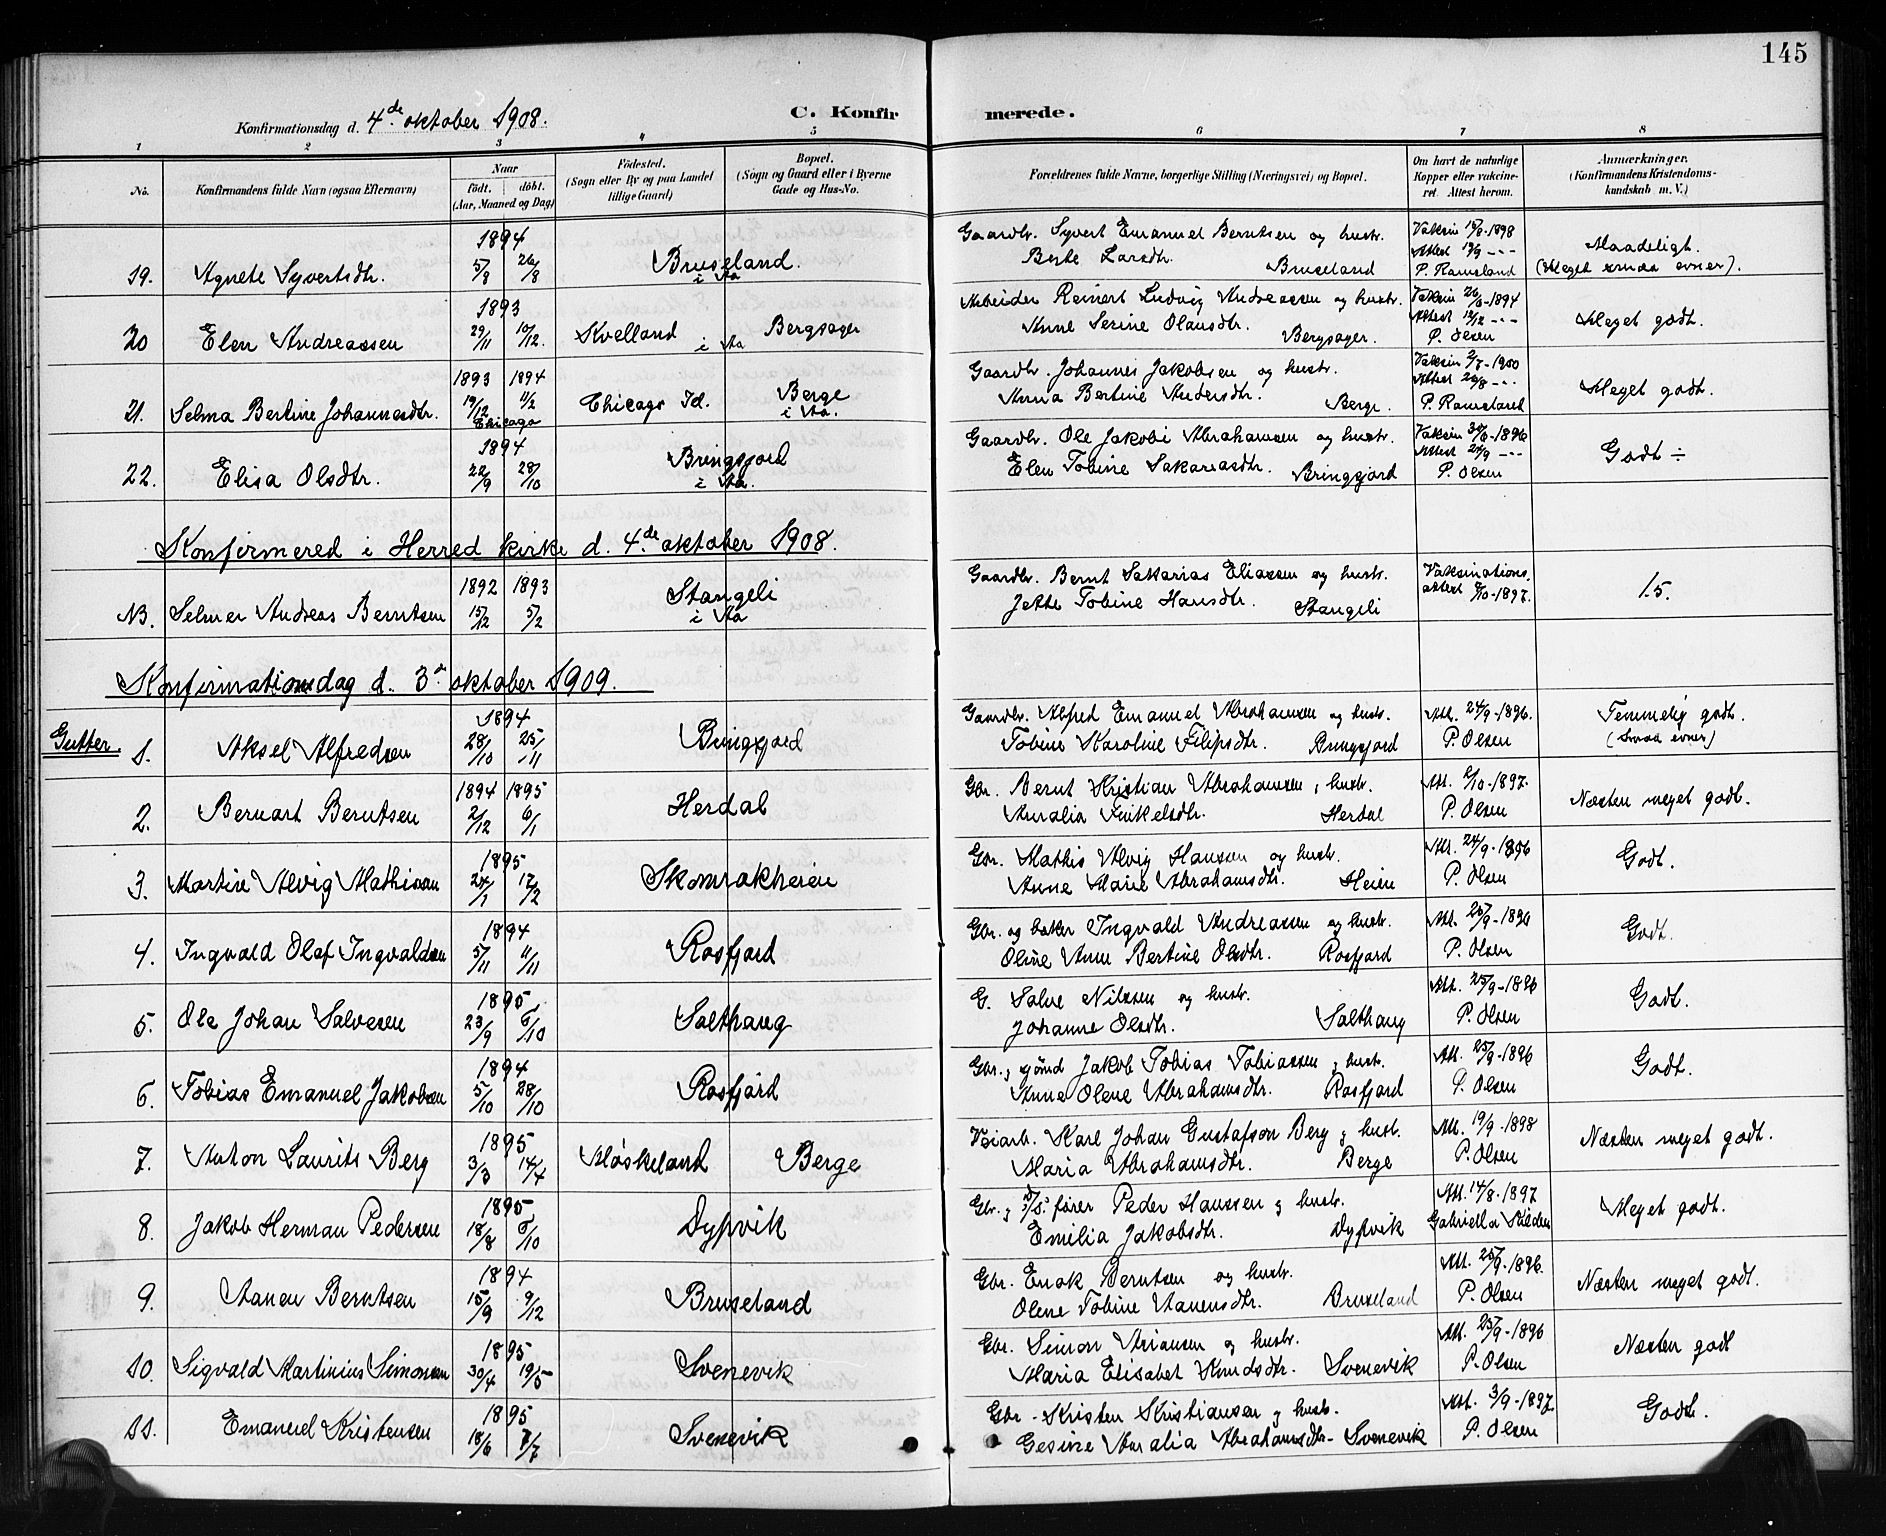 145
Konfirmationsdag d. 4de oktober 1908.
C. Konfirmerede.
1 2 3 4 5 6 7 8
No.
Konfirmandens fulde Navn (ogsaa Efternavn)
Naar
födt. döbt.
(Aar, Maaned og Dag)
Födested.
(Sogn eller By og paa Landet
tillige Gaard)
Bopæl.
(Sogn og Gaard eller i Byerne
Gade og Hus-No.
Forældrenes fulde Navne, borgerlige Stilling (Næringsvei) og Bopæl.
Om havt de naturlige
Kopper eller vakcine-
ret. Attest herom.
Anmærkninger.
(Konfirmandens Kristendoms-
kundskab m. V.)
19. Agnete Syvertsdtr. 1894 5/8 26/8 Bruseland i Aa
Gaardbr. Syvert Emanuel Berntsen og hustr.
Berte Larsdtr. Bruseland
P. Ramsland
Maadeligt.
(Meget smaa evner).
20 Elen Andreassen 1893 29/11 10/12. Kvelland i Aa Bergsager
Arbeider Reinert Ludvig Andreassen og hustr.
Anne Serine Olausdtr. Bergsager.
P. Olsen
Meget godt.
21. Selma Bertine Johannesdtr. 1893 1894 19/12 11/2 Chicago
Chicago Id. Berge i Aa.
Gaardbr. Johannes Jakobsen og hustr.
Anna Bertine Andersdtr. Berge.
Meget godt.
22. Elisa Olsdtr. 1894 22/9 28/10 Bringsjord i Aa.
Gaardbr. Ole Jakobi Abrahamsen og hustr.
Elen Tobine Sakariasdtr. Bringsjord
P. Olsen
Godt ÷
Konfirmered i Herred kirke d. 4de oktober 1908.
N3. Selmer Andreas Berntsen 1892 1893 15/12 5/2 Stangeli i Aa
Gaardbr. Bernt Sakarias Eliassen og hustr.
Jette Tobine Hansdtr. Stangeli
Vaksinations.
attest 6/10-1897.
1.5.
Konfirmationsdag d. 3de oktober 1909.
Gutter.
1. Aksel Alfredsen 1894 28/10 25/11 Bringsjord
Gaardbr. Alfred Emanuel Abrahamsen og hustr.
Tobine Karoline Filipsdtr. Bringsjord
Att. 24/9-1896.
P. Olsen
Temmelig godt.
(Smaa evner)
2. Bernart Berntsen 1894 1895 2/12 6/1 Herdal
Gbr. Bernt Kristian Abrahamsen, hustr.
Amalia Finkelsdtr. Herdal
Att. 6/10-1897.
P. Olsen
Næsten meget godt.
3. Martin Alvig Mathisen 1895 24/1 17/2 Skomrakheien
Gbr. Mathis Alvig Hansen og hustr.
Anne Marie Abrahamsdtr. Heien
Att. 24/9-1896
P. Olsen
Godt.
4. Ingvald Olaf Ingvaldsen 1894 5/11 11/11 Rosfjord
Gbr. og baker Ingvald Andreassen og hustr.
Oline Anne Bertine Olsdtr. Rosfjord
P. Olsen
Godt.
5. Ole Johan Salvesen 1895 23/9 6/10 Salthaug
G. Salve Nilssen og hustr.
Johanne Olsdtr. Salthaug
Att. 25/9-1896
P. Olsen
Godt.
6. Tobias Emanuel Jakobsen 1894 5/10 28/10 Rosfjord
Gbr. og sjømd Jakob Tobias Tobiassen, hustr.
Anne Olene Abrahamsdtr. Rosfjord
Att. 25/9-1896
P. Olsen
Godt.
7. Anton Laurits Berg 1895 3/3 14/4 Møskeland Berge
Veiarb. Karl Johan Gustafson Berg og hustr.
Maria Abrahamsdtr. Berge
Att. 19/9-1898
P. Olsen
Næsten meget godt.
8. Jakob Herman Pedersen 1895 18/8 6/10 Dypvik
Gbr. og D/S. fører Peder Hanssen og hustr.
Emilia Jakobsdtr. Dypvik
Att. 14/8-1897
Meget godt.
9. Aanen Berntsen 1894 15/9 9/12 Bruseland
Gbr. Enok Berntsen og hustr.
Olene Tobine Aanensdtr. Bruseland
Att. 25/9-1896.
P. Olsen
Næsten meget godt.
10. Sigvald Martinius Simonsen 1895 30/4 19/5 Svenevik
Gbr. Simon Ariansen og hustr.
Maria Elisabet Knudsdtr. Svenevik
Att. 25/9-1896
P. Olsen
Næsten godt
11. Emanuel Kristensen 1895 18/6 7/7 Svenevik
Gbr. Kristen Kristiansen og hustr.
Gesine Amalia Abrahamsdtr- Svenevik
Att. 3/9-1897.
P. Olsen
Godt.